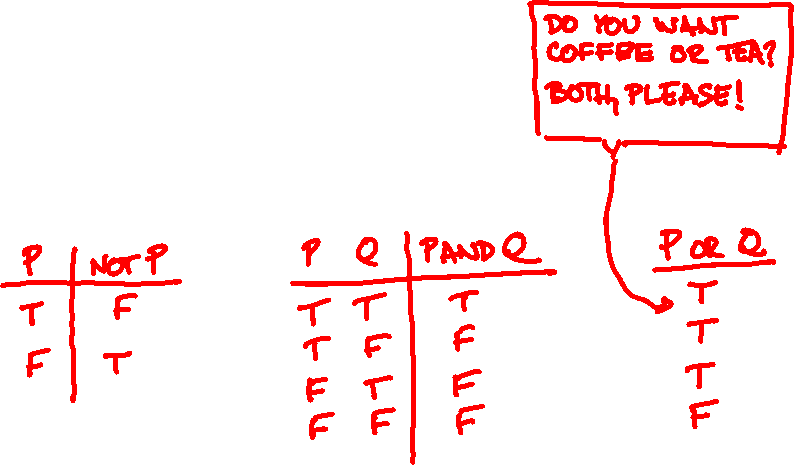 DO YOU WANT
COFFEE OR TEA?
BOTH, PLEASE!
P NOT P
T F
F T
P Q P AND Q
T T T
T F F
F T F
F F F
P OR Q
T
T
T
F